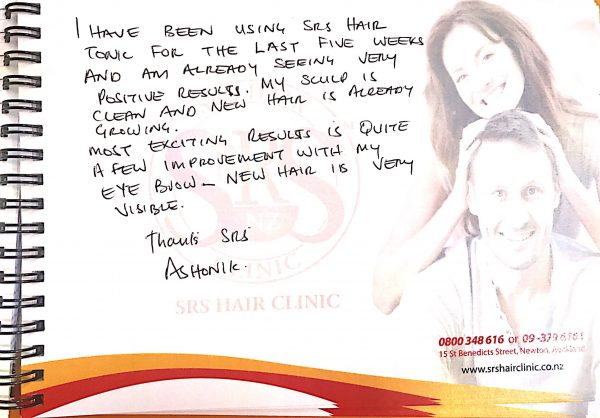 I HAVE BEEN USING SRS HAIR
TONIC FOR THE LAST FIVE WEEKS
AND AM ALREADY SEEING VERY
POSITIVE RESULTS. MY SCULP IS
CLEAN AND NEW HAIR IS ALREADY
GROWING.
MOST EXCITING RESULTS IS QUITE
A FEW IMPROVEMENT WITH MY
EYE BROW - NEW HAIR IS VERY
VISIBLE.
Thanks SRS
ASHONIK
SRS
NZ
CLINIC
SRS HAIR CLINIC
0800 348 616 or 09-379 6161
15 St Benedicts Street, Newton, Auckland
www.srshairclinic.co.nz